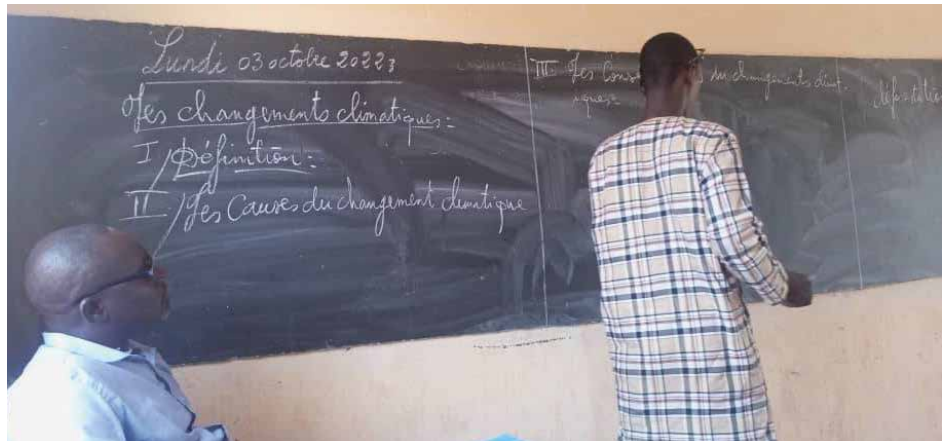 Lundi 03 octobre 2022
Les changements climatiques:
I/ Définition:
II/ Les Causes du changement climatique
III Les du changements
iques